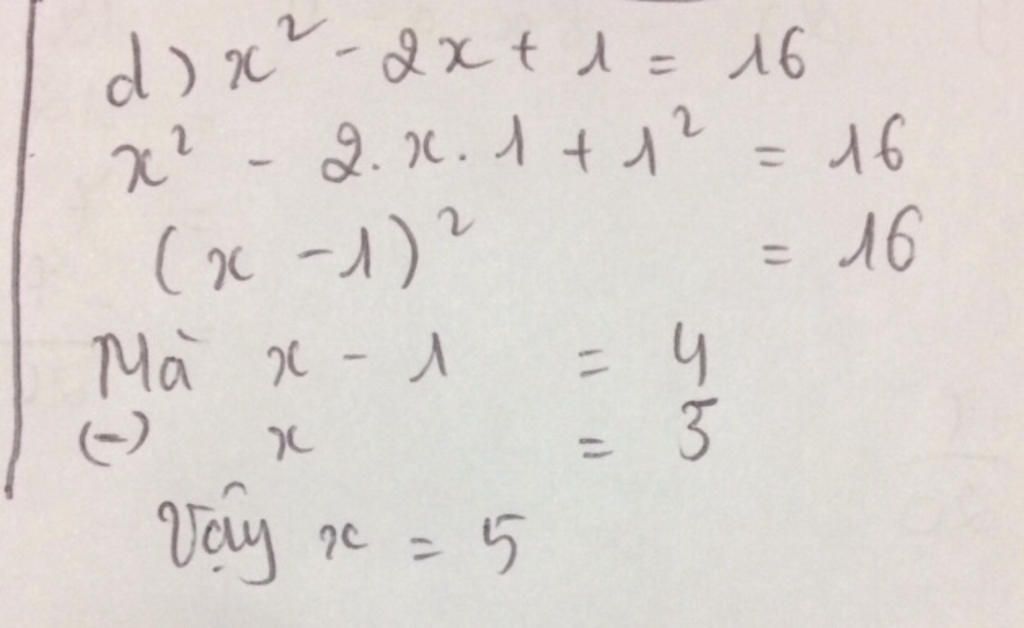 d) x² - 2x + 1 = 16
x² - 2. x. 1 + 1² = 16
(x - 1)² = 16
Mà x - 1 = 4
(-) x = 5
Vậy x = 5